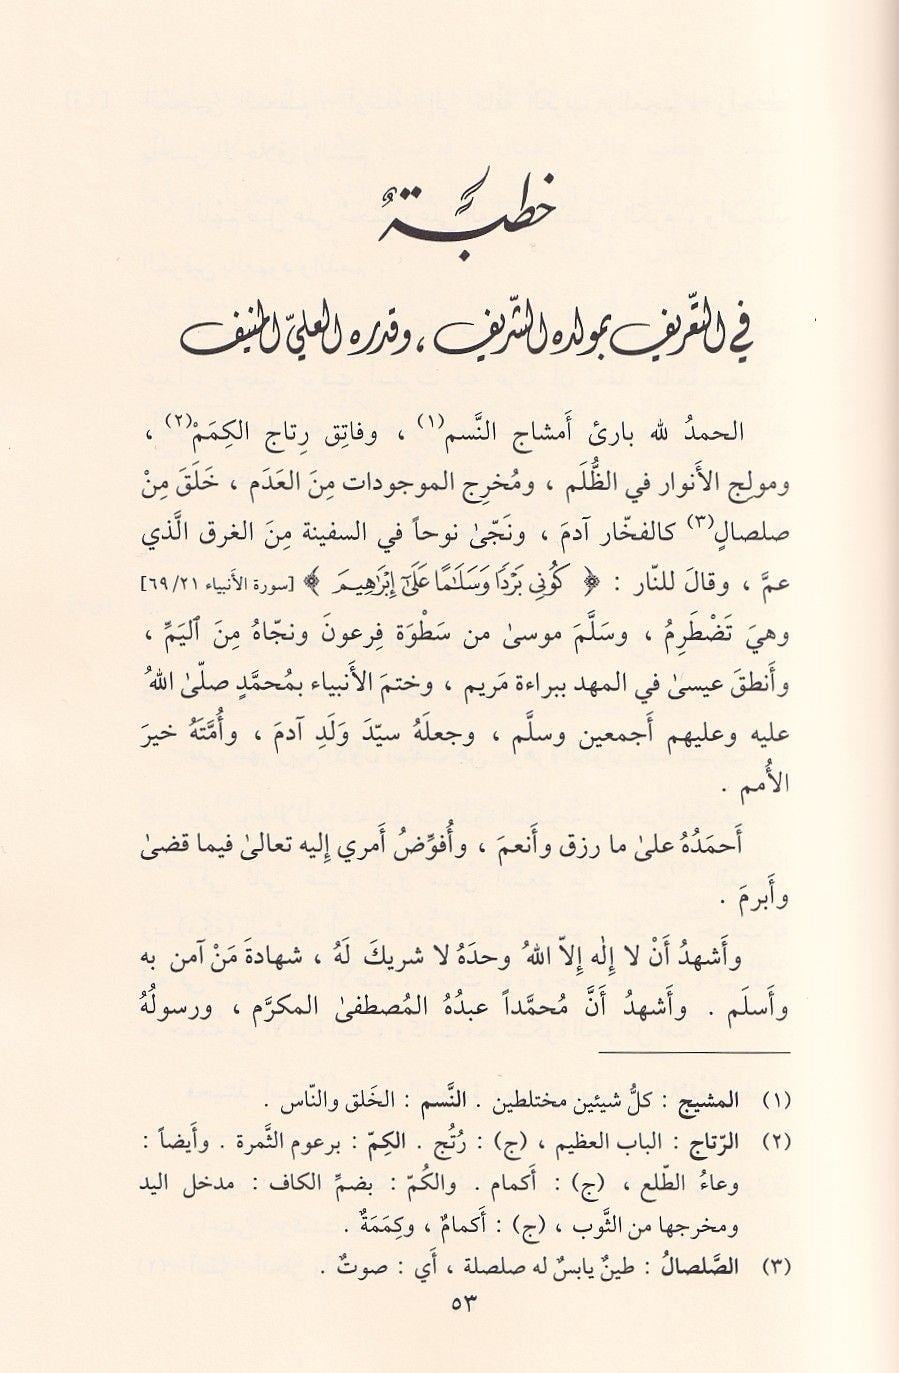 خطبةٌ
في التّعريف بمولده الشّريف ، وقدره العليّ المنيف
الحمدُ لله بارئ أَمشاج النَّسم(١) ، وفاتِق رِتاج الكِمَمْ(٢) ،
ومولِج الأَنوار في الظُّلَم ، ومُخرِج الموجودات مِنَ العَدَم ، خَلَقَ مِنْ
صلصالٍ(٣) كالفخّار آدمَ ، ونَجّىٰ نوحاً في السفينة مِنَ الغرق الَّذي
عمَّ ، وقالَ للنّار : ﴿ كُونِي بَرْدًا وَسَلَٰمًا عَلَىٰٓ إِبْرَٰهِيمَ ﴾ [سورة الأَنبياء ٢١/ ٦٩]
وهيَ تَضْطَرِمُ ، وسَلَّمَ موسىٰ من سَطْوَة فِرعونَ ونجّاهُ مِنَ ٱليَمِّ ،
وأَنطقَ عيسىٰ في المهد ببراءة مَريم ، وختمَ الأَنبياء بمُحمَّدٍ صلّىٰ اللهُ
عليه وعليهم أَجمعين وسلَّم ، وجعلَهُ سيّدَ وَلَدِ آدمَ ، وأُمَّتَهُ خيرَ
الأُمم .
أَحمَدُهُ علىٰ ما رزق وأَنعمَ ، وأُفوِّضُ أَمري إِليه تعالىٰ فيما قضىٰ
وأَبرمَ .
وأَشهدُ أَنْ لا إِلٰه إِلاّ اللهُ وحدَهُ لا شريكَ لَهُ ، شهادةَ مَنْ آمن به
وأَسلَم . وأَشهدُ أَنَّ مُحمَّداً عبدُهُ المُصطفىٰ المكرَّم ، ورسولُهُ
(١) المشيج : كلُّ شيئين مختلطين . النَّسم : الخَلق والنّاس .
(٢) الرّتاج : الباب العظيم ، (ج) : رُتُج . الكِمّ : برعوم الثَّمرة . وأَيضاً :
وعاءُ الطّلع ، (ج) : أَكمام . والكُمّ : بضمِّ الكاف : مدخل اليد
ومخرجها من الثَّوب ، (ج) : أَكمامٌ ، وكِمَمَةٌ .
(٣) الصَّلصالُ : طينٌ يابسٌ له صلصلة ، أَي : صوتٌ .
٥٣